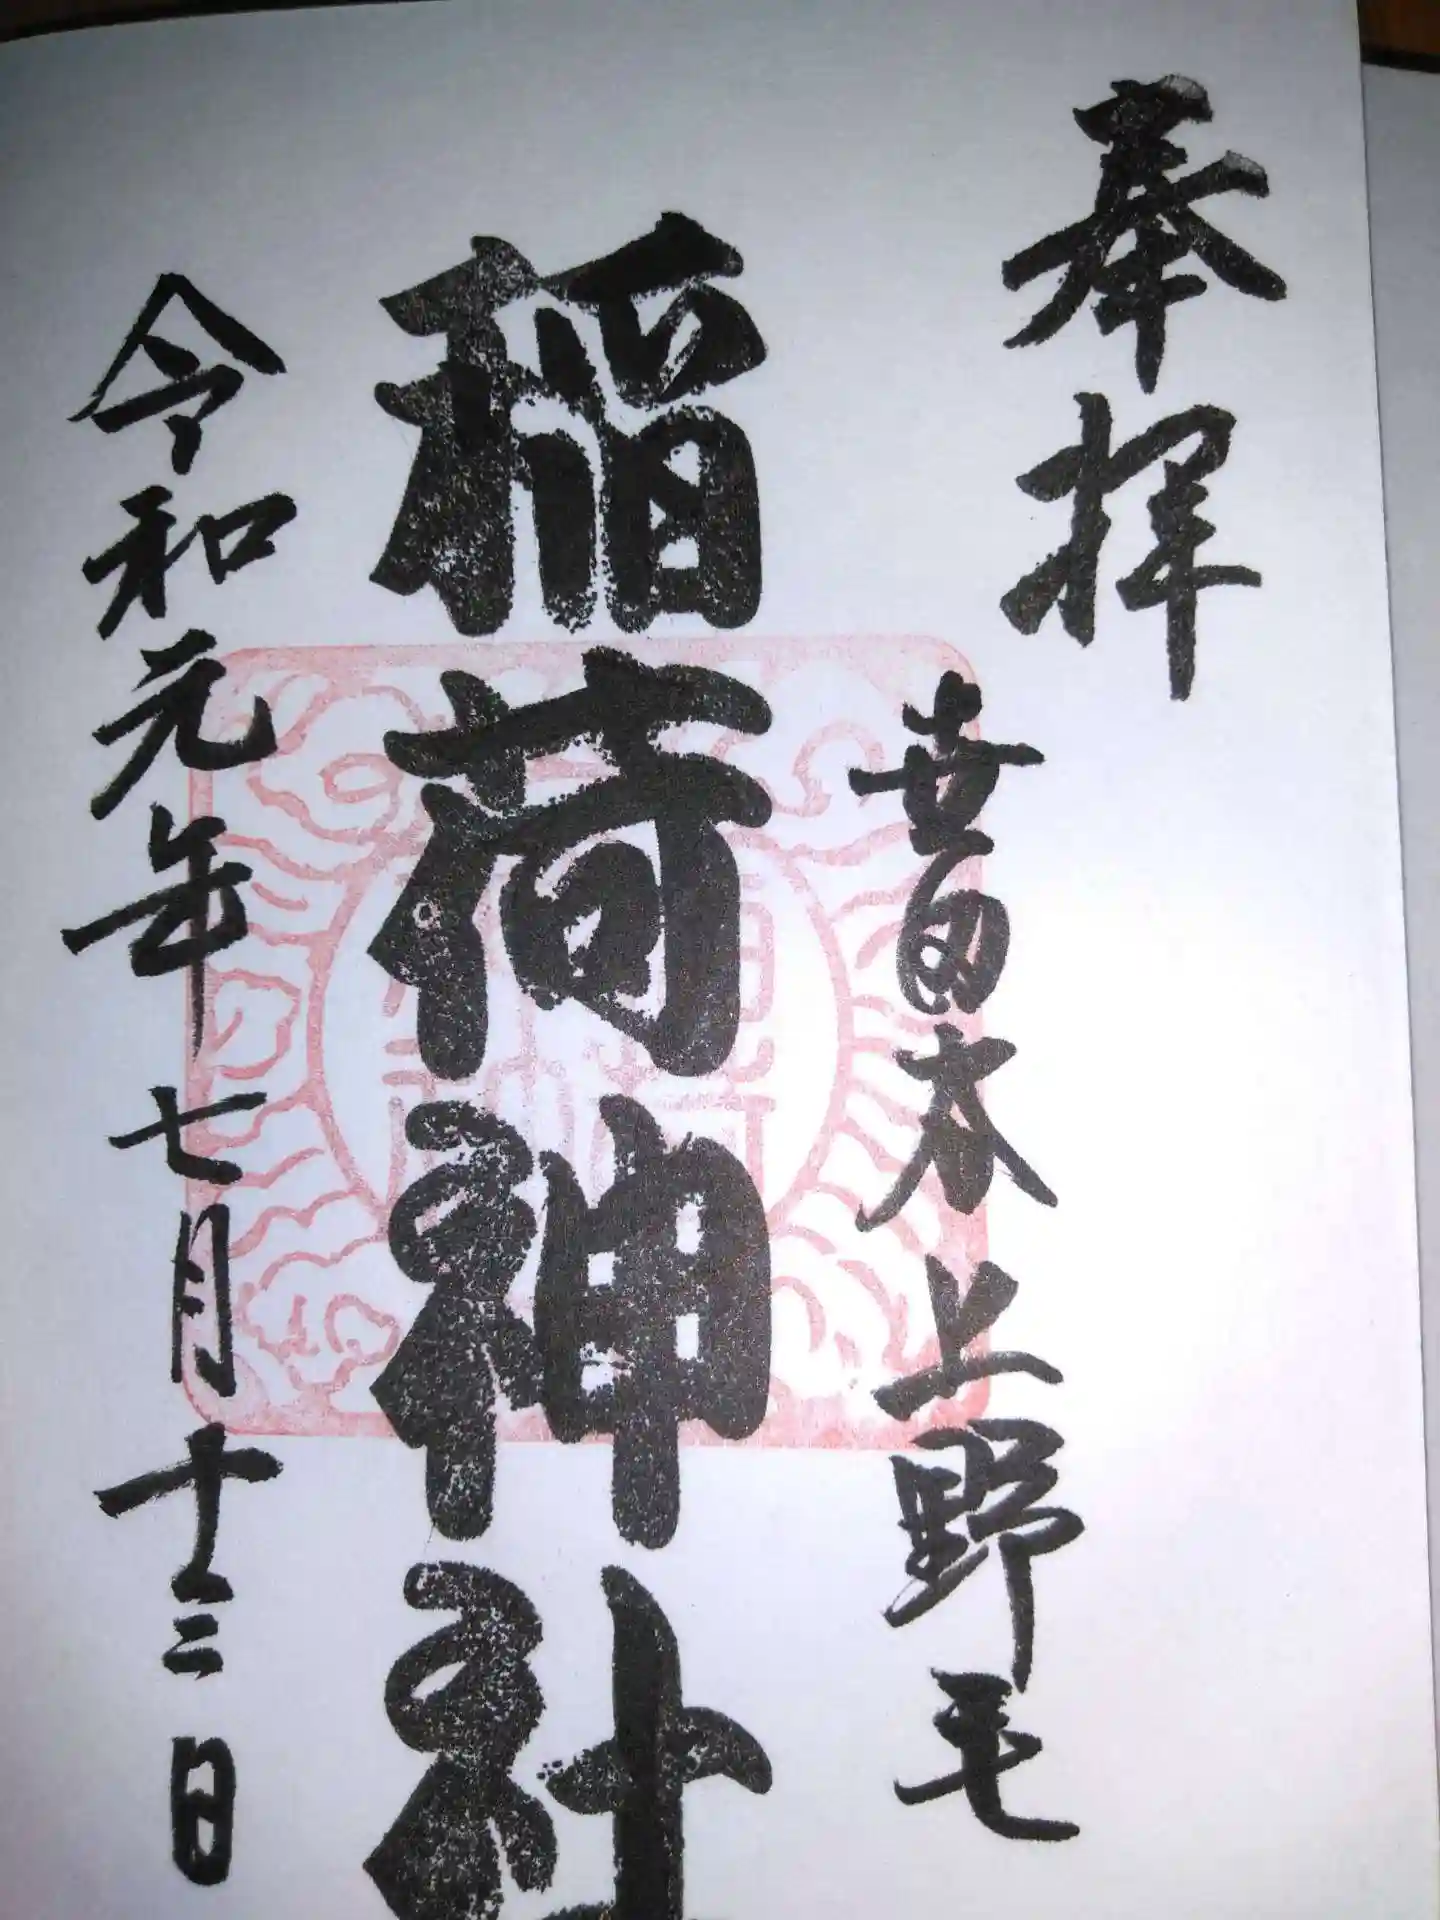 奉拝
世田谷上野毛
稲荷神社
令和元年七月十二日